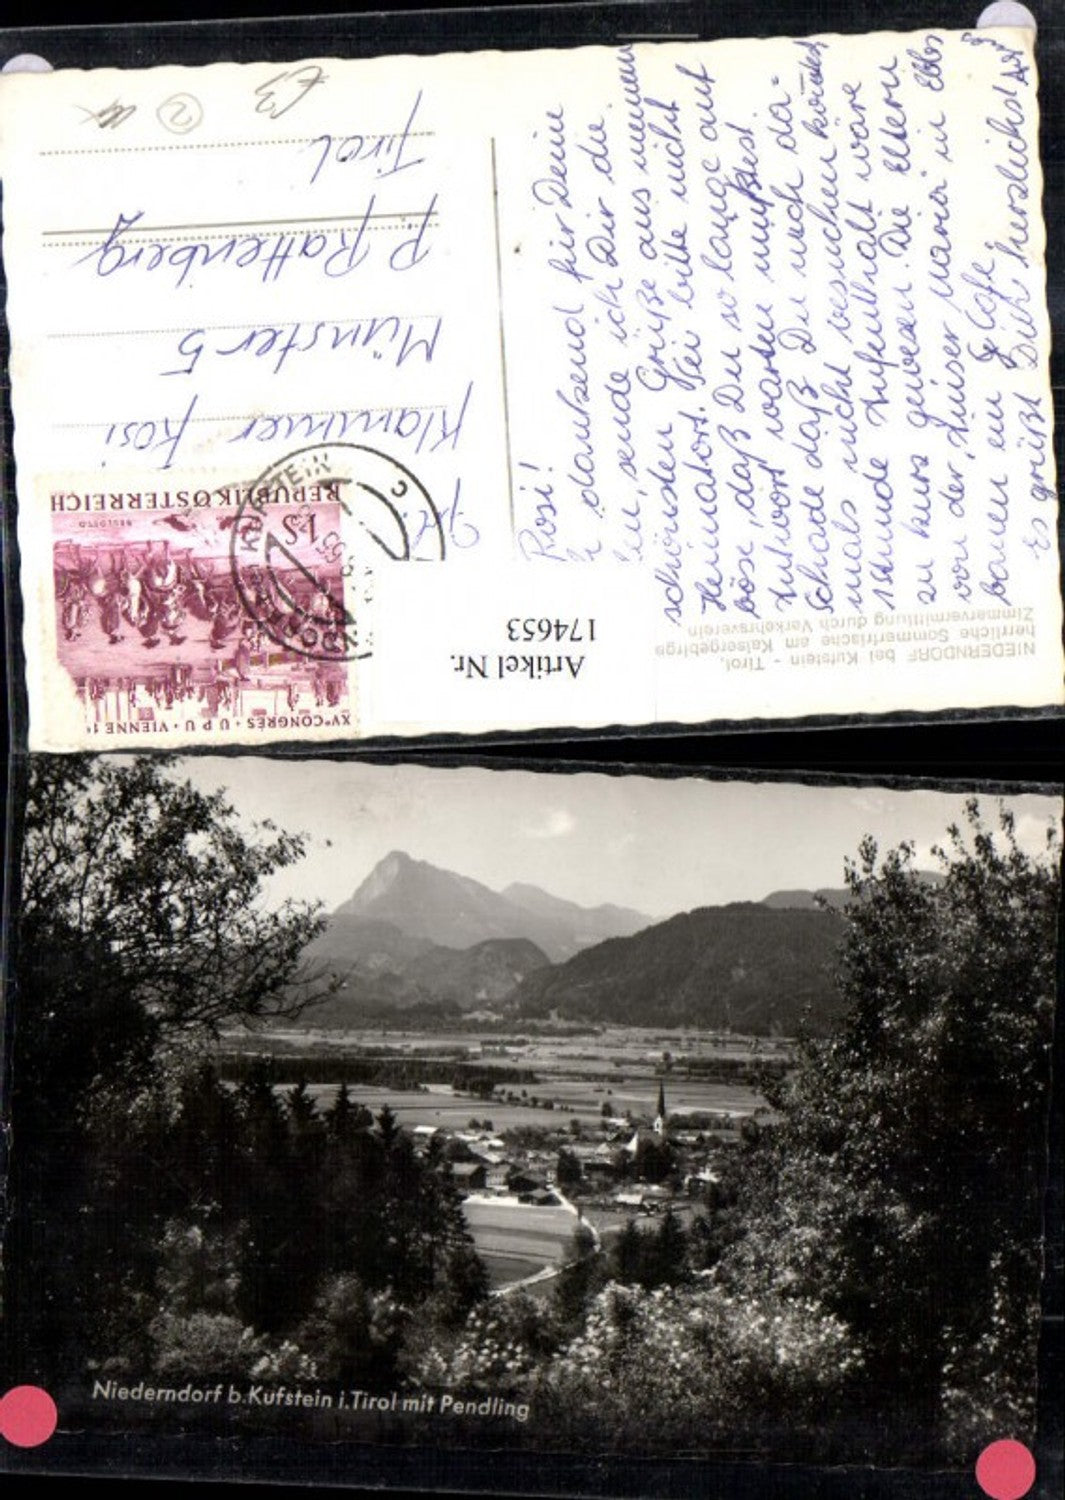 Rosi!
dankend für Deine
sende ich Dir die
schönsten Grüße aus meinem
Heimatort. Sei bitte nicht
böse, daß Du so lange auf
Antwort warten mußt.
Schade daß Du mich da-
mals nicht besuchen
1 Stunde Aufenthalt wäre
zu kurz gewesen. Die Eltern
von der Maria in Ebbs
bauen ein Cafe
Es grüßt Dich herzlichst
Klammer Rosi
Münster 5
P. Rattenberg
Tirol
2
€3
REPUBLIK ÖSTERREICH
1S
BELLOTTO
XVᵉ CONGRÈS · U P U · VIENNE 1
KUFSTEIN
C
Artikel Nr.
174653
NIEDERNDORF bei Kufstein - Tirol,
herrliche Sommerfrische am Kaisergebirge
Zimmervermittlung durch Verkehrsverein
Niederndorf b. Kufstein i. Tirol mit Pendling